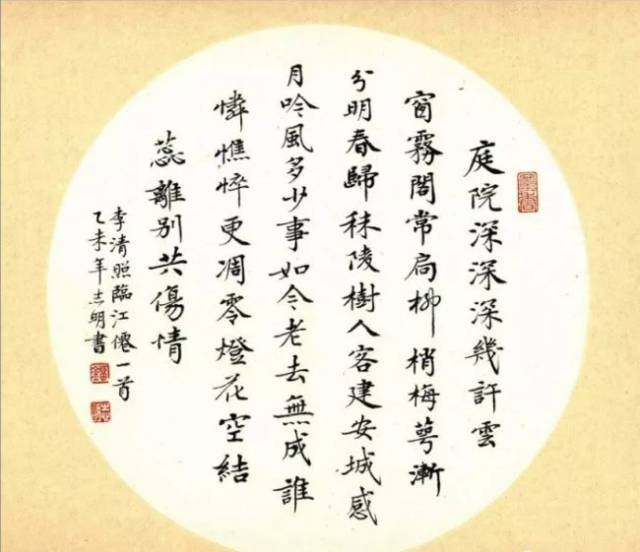 庭院深深深幾許雲
窗霧閣常扃柳梢梅萼漸
分明春歸秣陵樹人客建安城感
月吟風多少事如今老去無成誰
憐憔悴更凋零燈花空結
蕊離別共傷情
李清照臨江僊一首
乙未年志明書